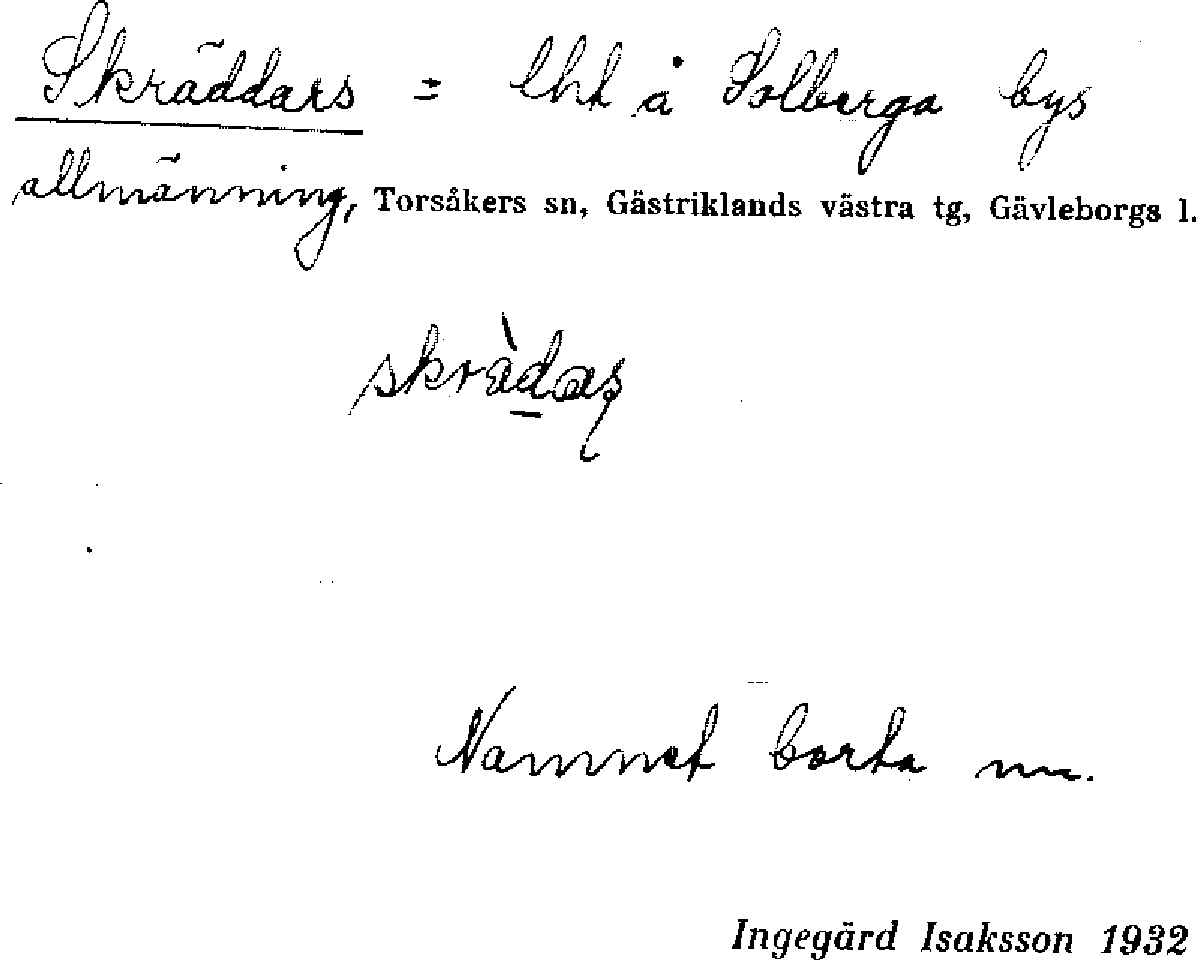 Skräddars = lht å Solberga bys
allmänning, Torsåkers sn, Gästriklands västra tg, Gävleborgs l.
skrädas
Namnet borta nu.
Ingegärd Isaksson 1932